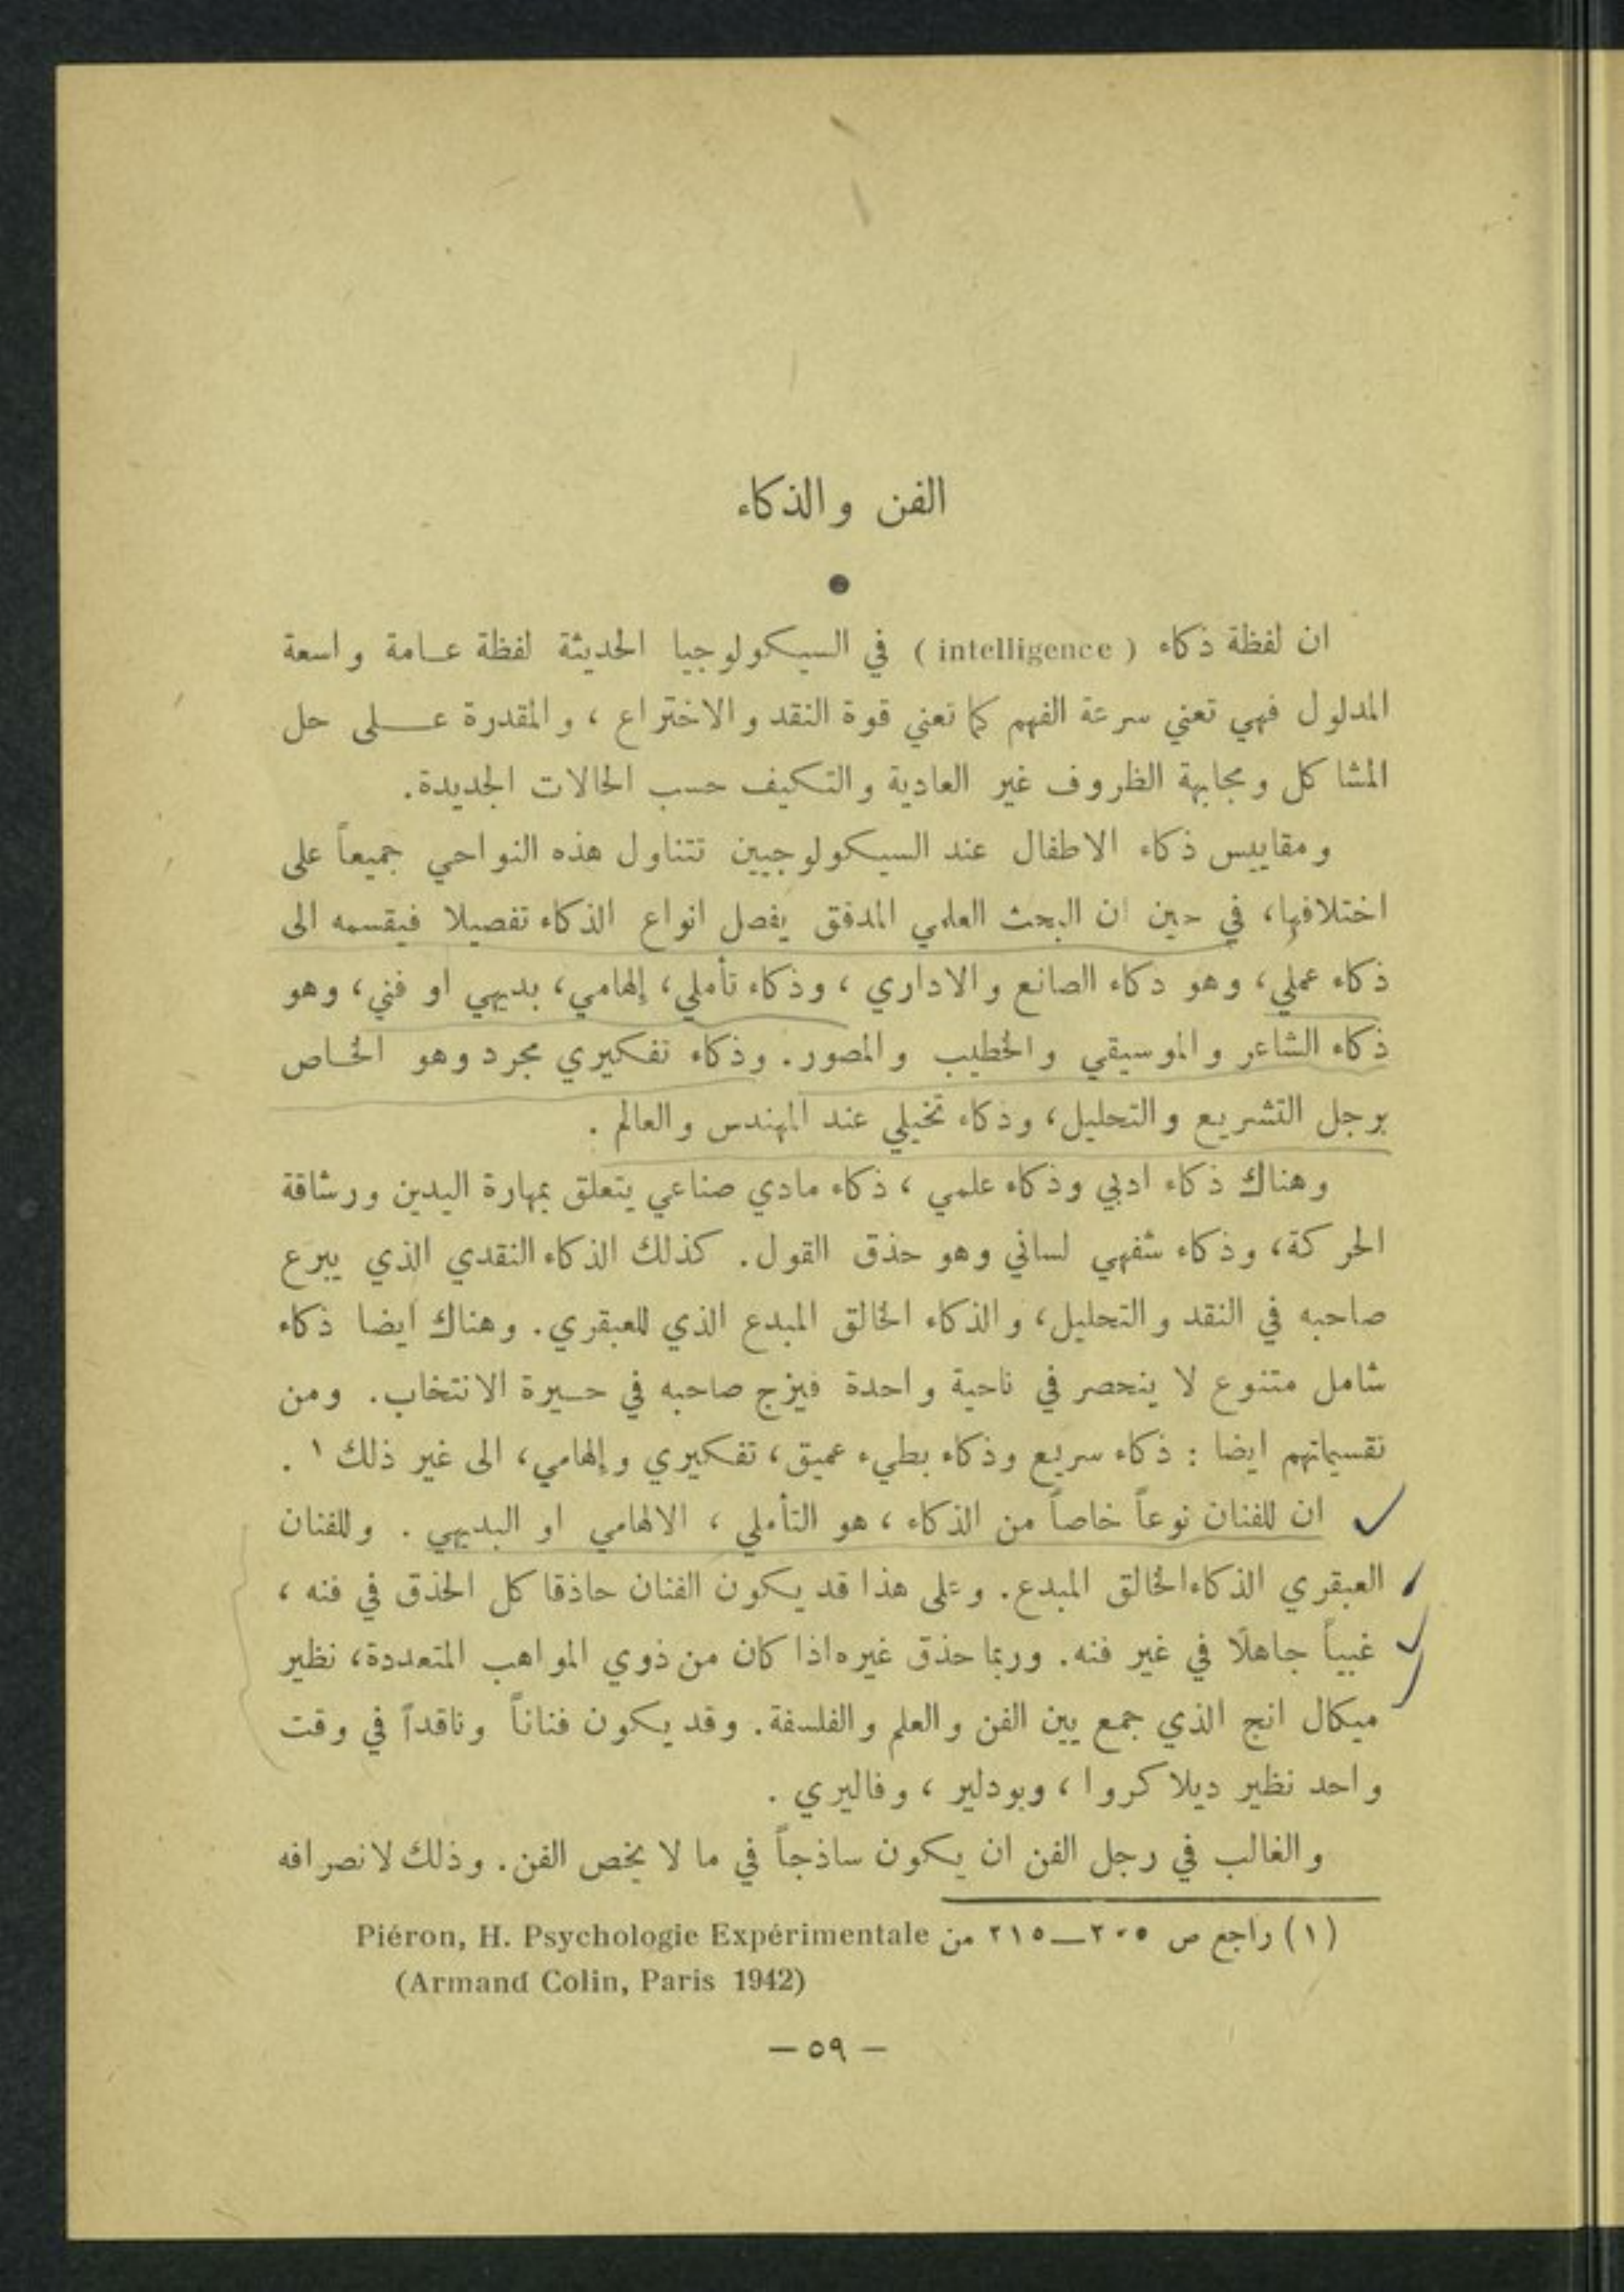 الفن والذكاء
ان لفظة ذكاء ( intelligence ) في السيكولوجيا الحديثة لفظة عامة واسعة
المدلول فهي تعني سرعة الفهم كما تعني قوة النقد والاختراع ، والمقدرة على حل
المشاكل ومجابهة الظروف غير العادية والتكيف حسب الحالات الجديدة.
ومقاييس ذكاء الاطفال عند السيكولوجيين تتناول هذه النواحي جميعاً على
اختلافها، في حين ان البحث العلمي المدقق يفصل انواع الذكاء تفصيلا فيقسمه الى
ذكاء عملي، وهو ذكاء الصانع والاداري ، وذكاء تأملي، إلهامي، بديهي او فني، وهو
ذكاء الشاعر والموسيقي والخطيب والمصور. وذكاء تفكيري مجرد وهو الخاص
برجل التشريع والتحليل، وذكاء تخيلي عند المهندس والعالم .
وهناك ذكاء ادبي وذكاء علمي ، ذكاء مادي صناعي يتعلق بمهارة اليدين ورشاقة
الحركة، وذكاء شفهي لساني وهو حذق القول. كذلك الذكاء النقدي الذي يبرع
صاحبه في النقد والتحليل، والذكاء الخالق المبدع الذي للعبقري. وهناك ايضا ذكاء
شامل متنوع لا ينحصر في ناحية واحدة فيزج صاحبه في حيرة الانتخاب. ومن
تقسيماتهم ايضا : ذكاء سريع وذكاء بطيء عميق، تفكيري وإلهامي، الى غير ذلك ١ .
ان للفنان نوعاً خاصاً من الذكاء ، هو التأملي ، الالهامي او البديهي . وللفنان
العبقري الذكاء الخالق المبدع. وعلى هذا قد يكون الفنان حاذقا كل الحذق في فنه ،
غبياً جاهلًا في غير فنه. وربما حذق غيره اذا كان من ذوي المواهب المتعددة، نظير
ميكال انج الذي جمع بين الفن والعلم والفلسفة. وقد يكون فناناً وناقداً في وقت
واحد نظير ديلاكروا ، وبودلير ، وفاليري .
والغالب في رجل الفن ان يكون ساذجاً في ما لا يخص الفن. وذلك لانصرافه
(١) راجع ص ٢٠٥—٢١٥ من Piéron, H. Psychologie Expérimentale
(Armand Colin, Paris 1942)
— ٥٩ —